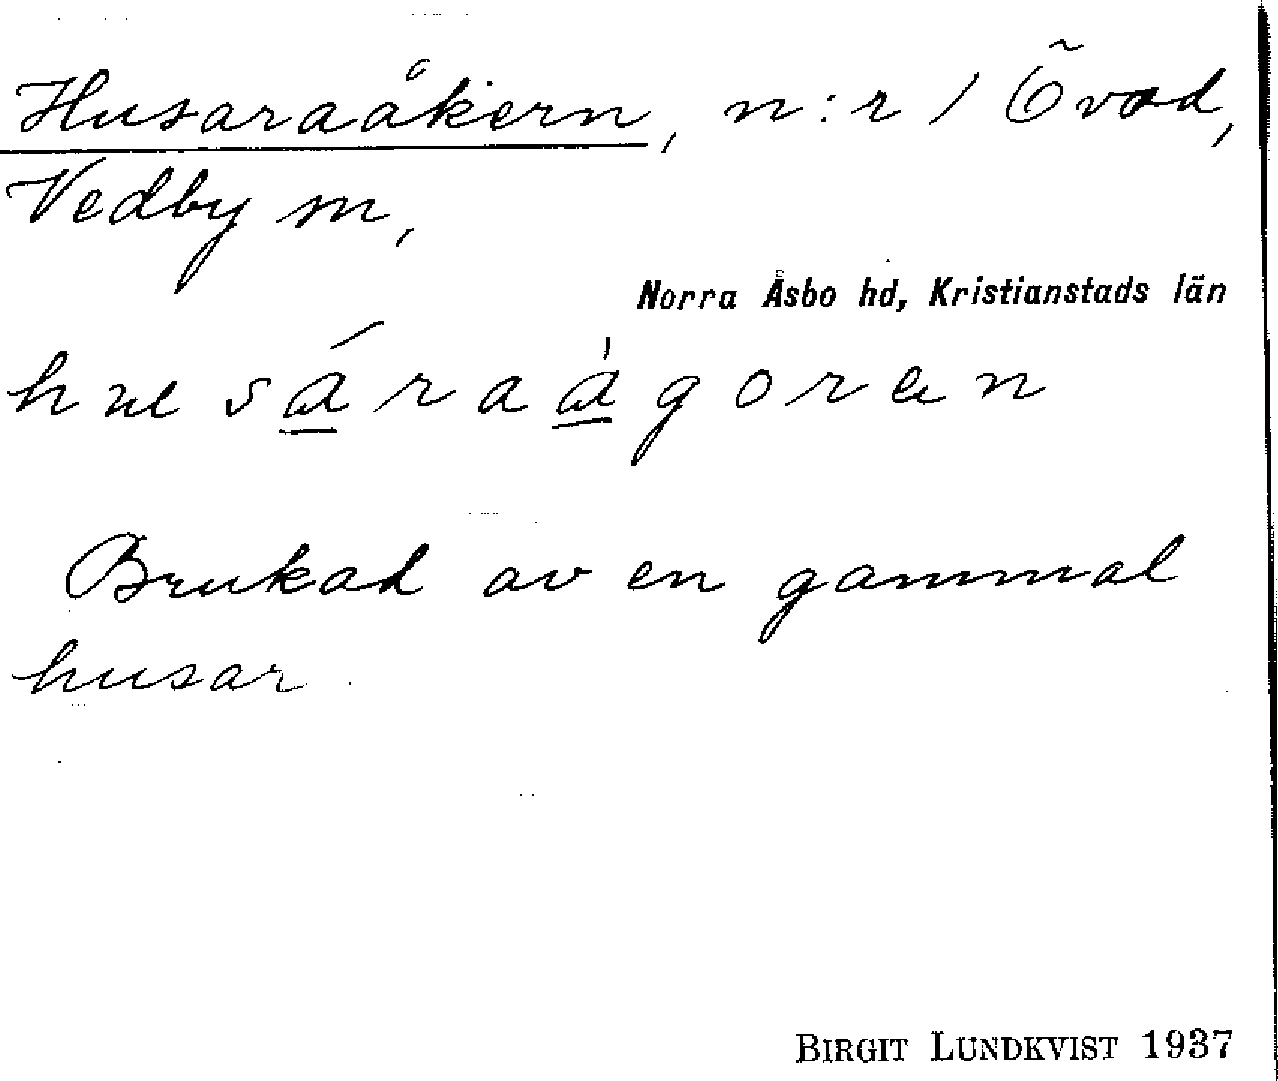 Husaraåkern, n:r 1 Övad,
Vedby sn,
Norra Åsbo hd, Kristianstads län
Brukad av en gammal
husar
BIRGIT LUNDKVIST 1937